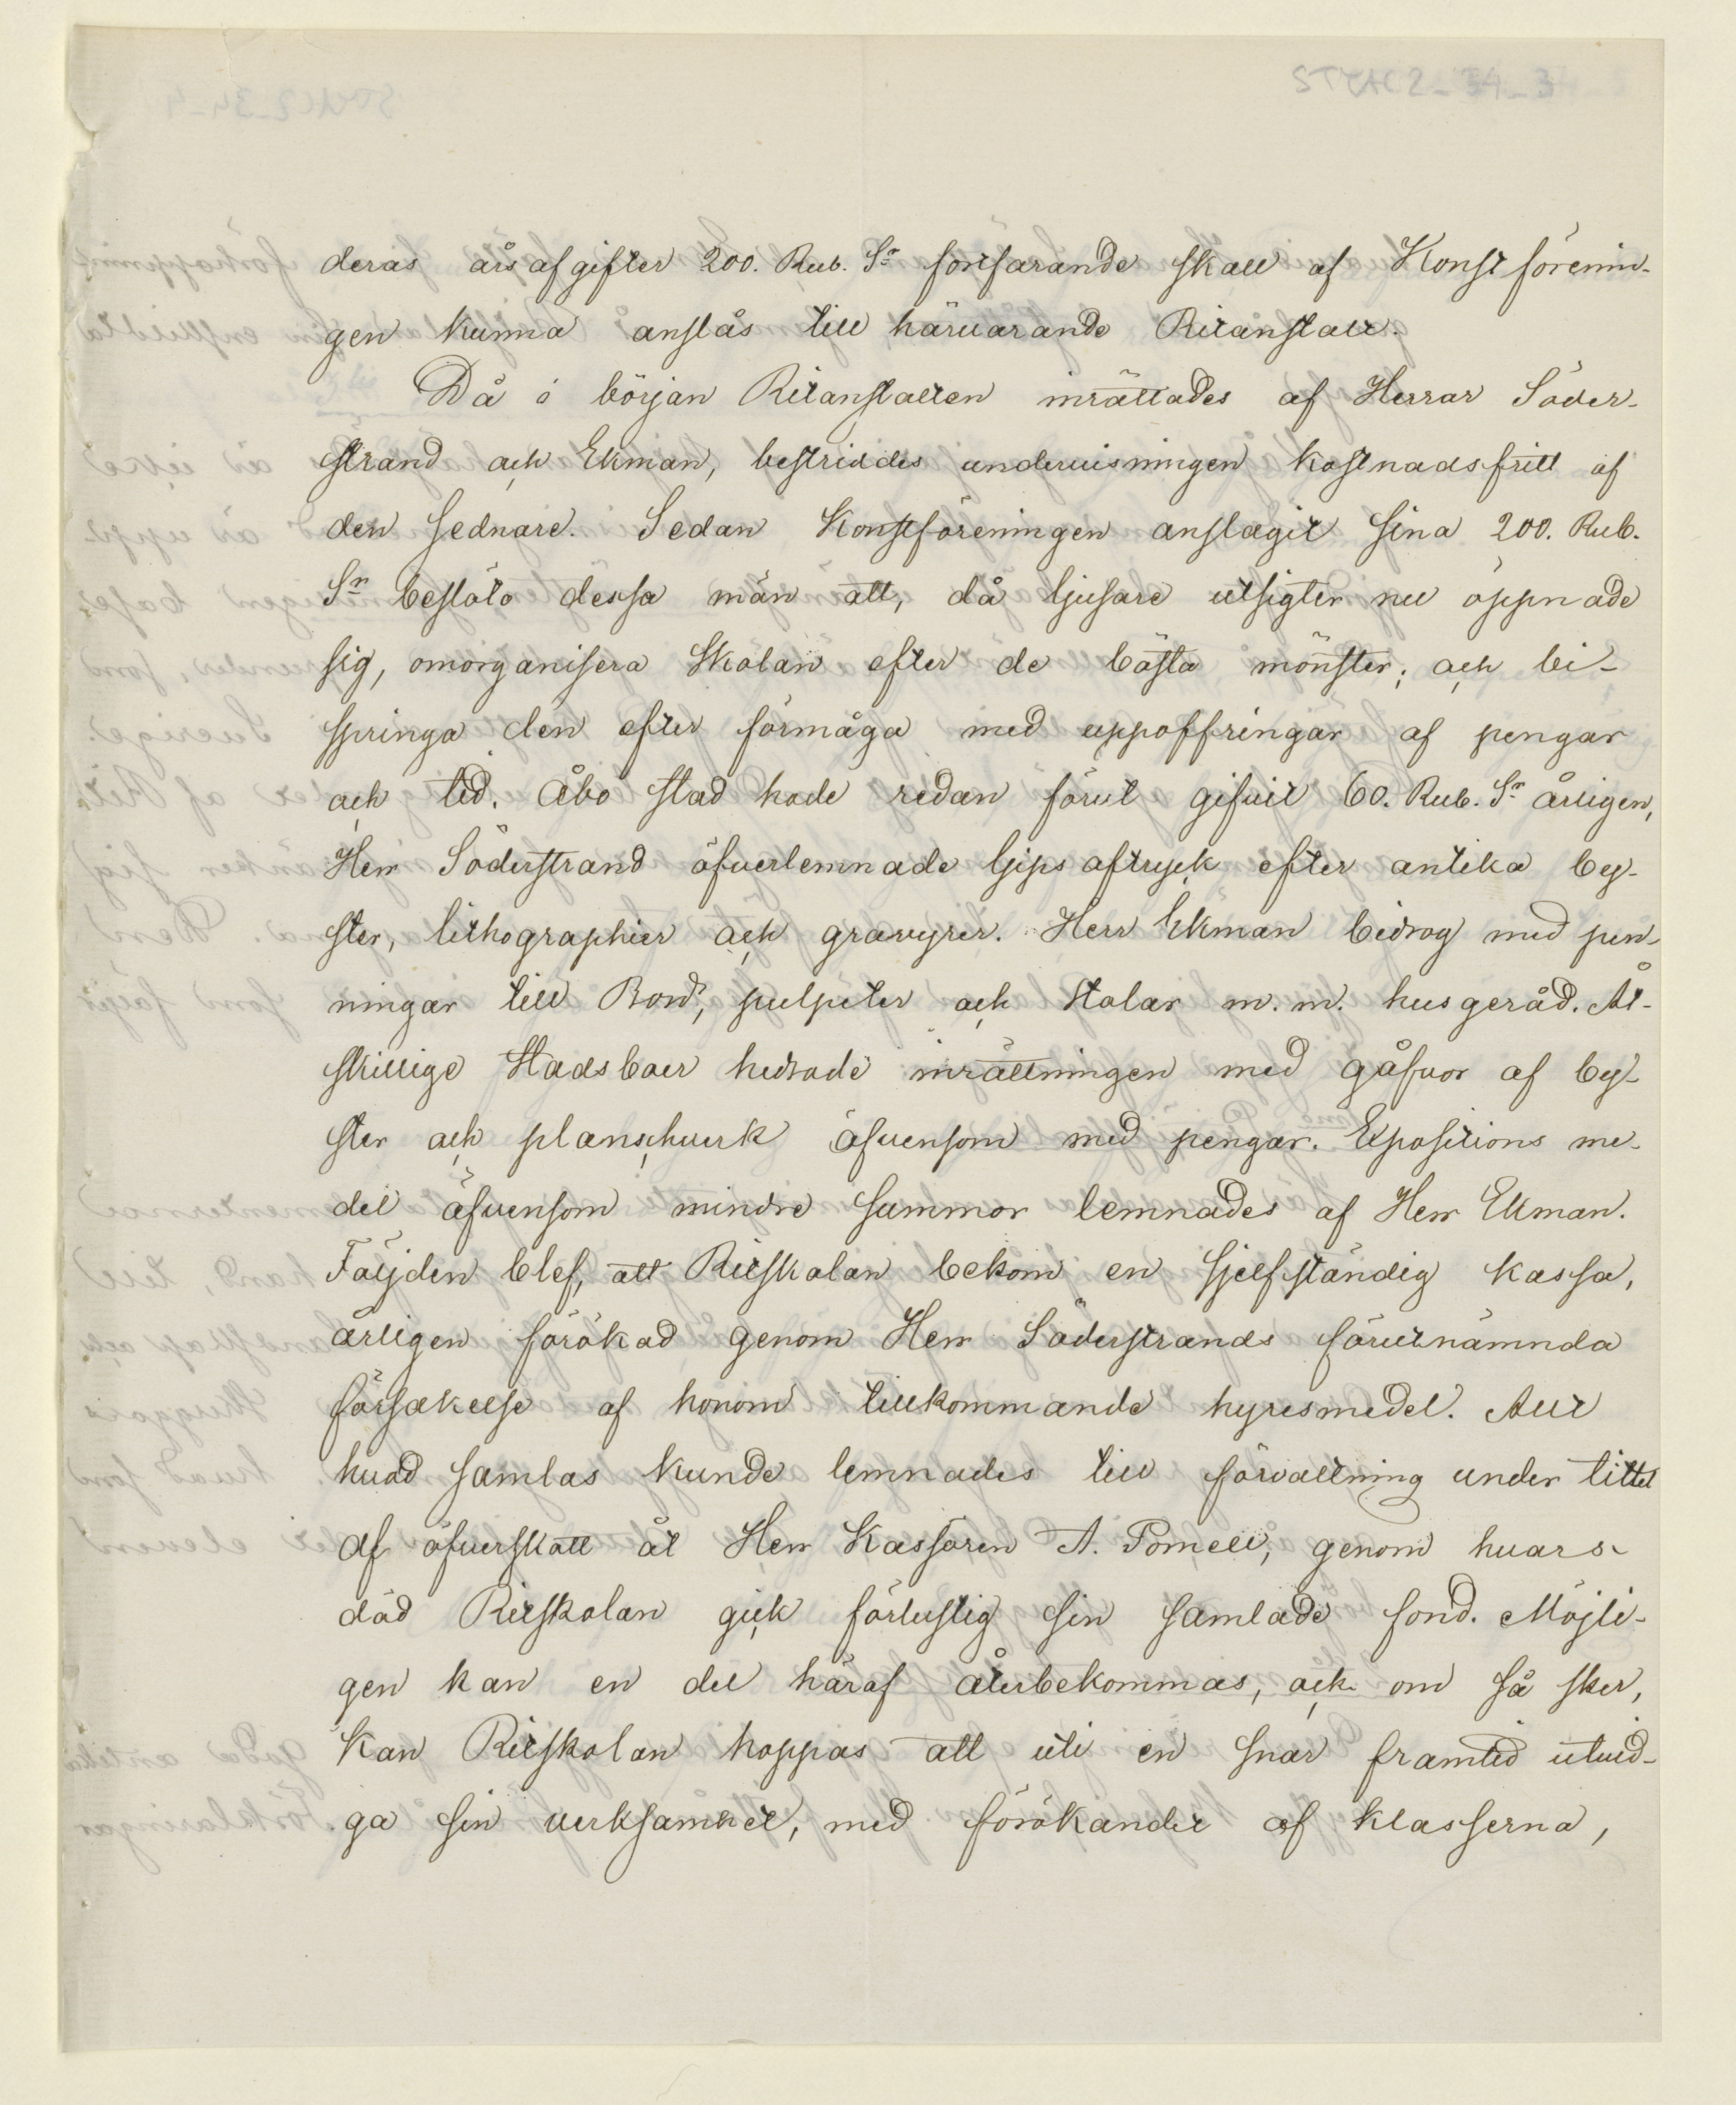 STYAC2_34_3
deras årsafgifter 200. Rub. Sr fortfarande skall af Konstförenin-
gen kunna anslås till härvarande Ritanstalt.
Då i början Ritanstalten inrättades af Herrar Söder-
strand och Ekman, bestriddes undervisningen kostnadsfritt af
den sednare. Sedan Konstföreningen anslagit sina 200. Rub.
Sr beslöto dessa män att, då ljusare utsigter nu öppnade
sig, omorganisera skolan efter de bästa mönster; och bi-
springa den efter förmåga med uppoffringar af pengar
och tid. Åbo stad hade redan förut gifvit 60. Rub. Sr årligen,
Herr Söderstrand öfverlemnade Gips aftryck efter antika by-
ster, lithographier och gravyrer. Herr Ekman bidrog med pen-
ningar till Bord, pulpeter och stolar m. m. husgeråd. Åt-
skillige Stadsboer hedrade inrättningen med gåfvor af by-
ster och planschverk äfvensom med pengar. Expositions me-
del äfvensom mindre summor lemnades af Herr Ekman.
Följden blef, att Ritskolan bekom en sjelfständig kassa,
årligen förökad genom Herr Söderstrands förutnämnda
försakelse af honom tillkommande hyresmedel. Allt
hvad samlas kunde lemnades till förvaltning under tittel
af öfverskott åt Herr Kassören A. Pomell, genom hvars
död Ritskolan gick förlustig sin samlade fond. Möjli-
gen kan en del häraf återbekommas, och om så sker,
kan Ritskolan hoppas att uti en snar framtid utvid-
ga sin verksamhet, med förökandet af klasserna,